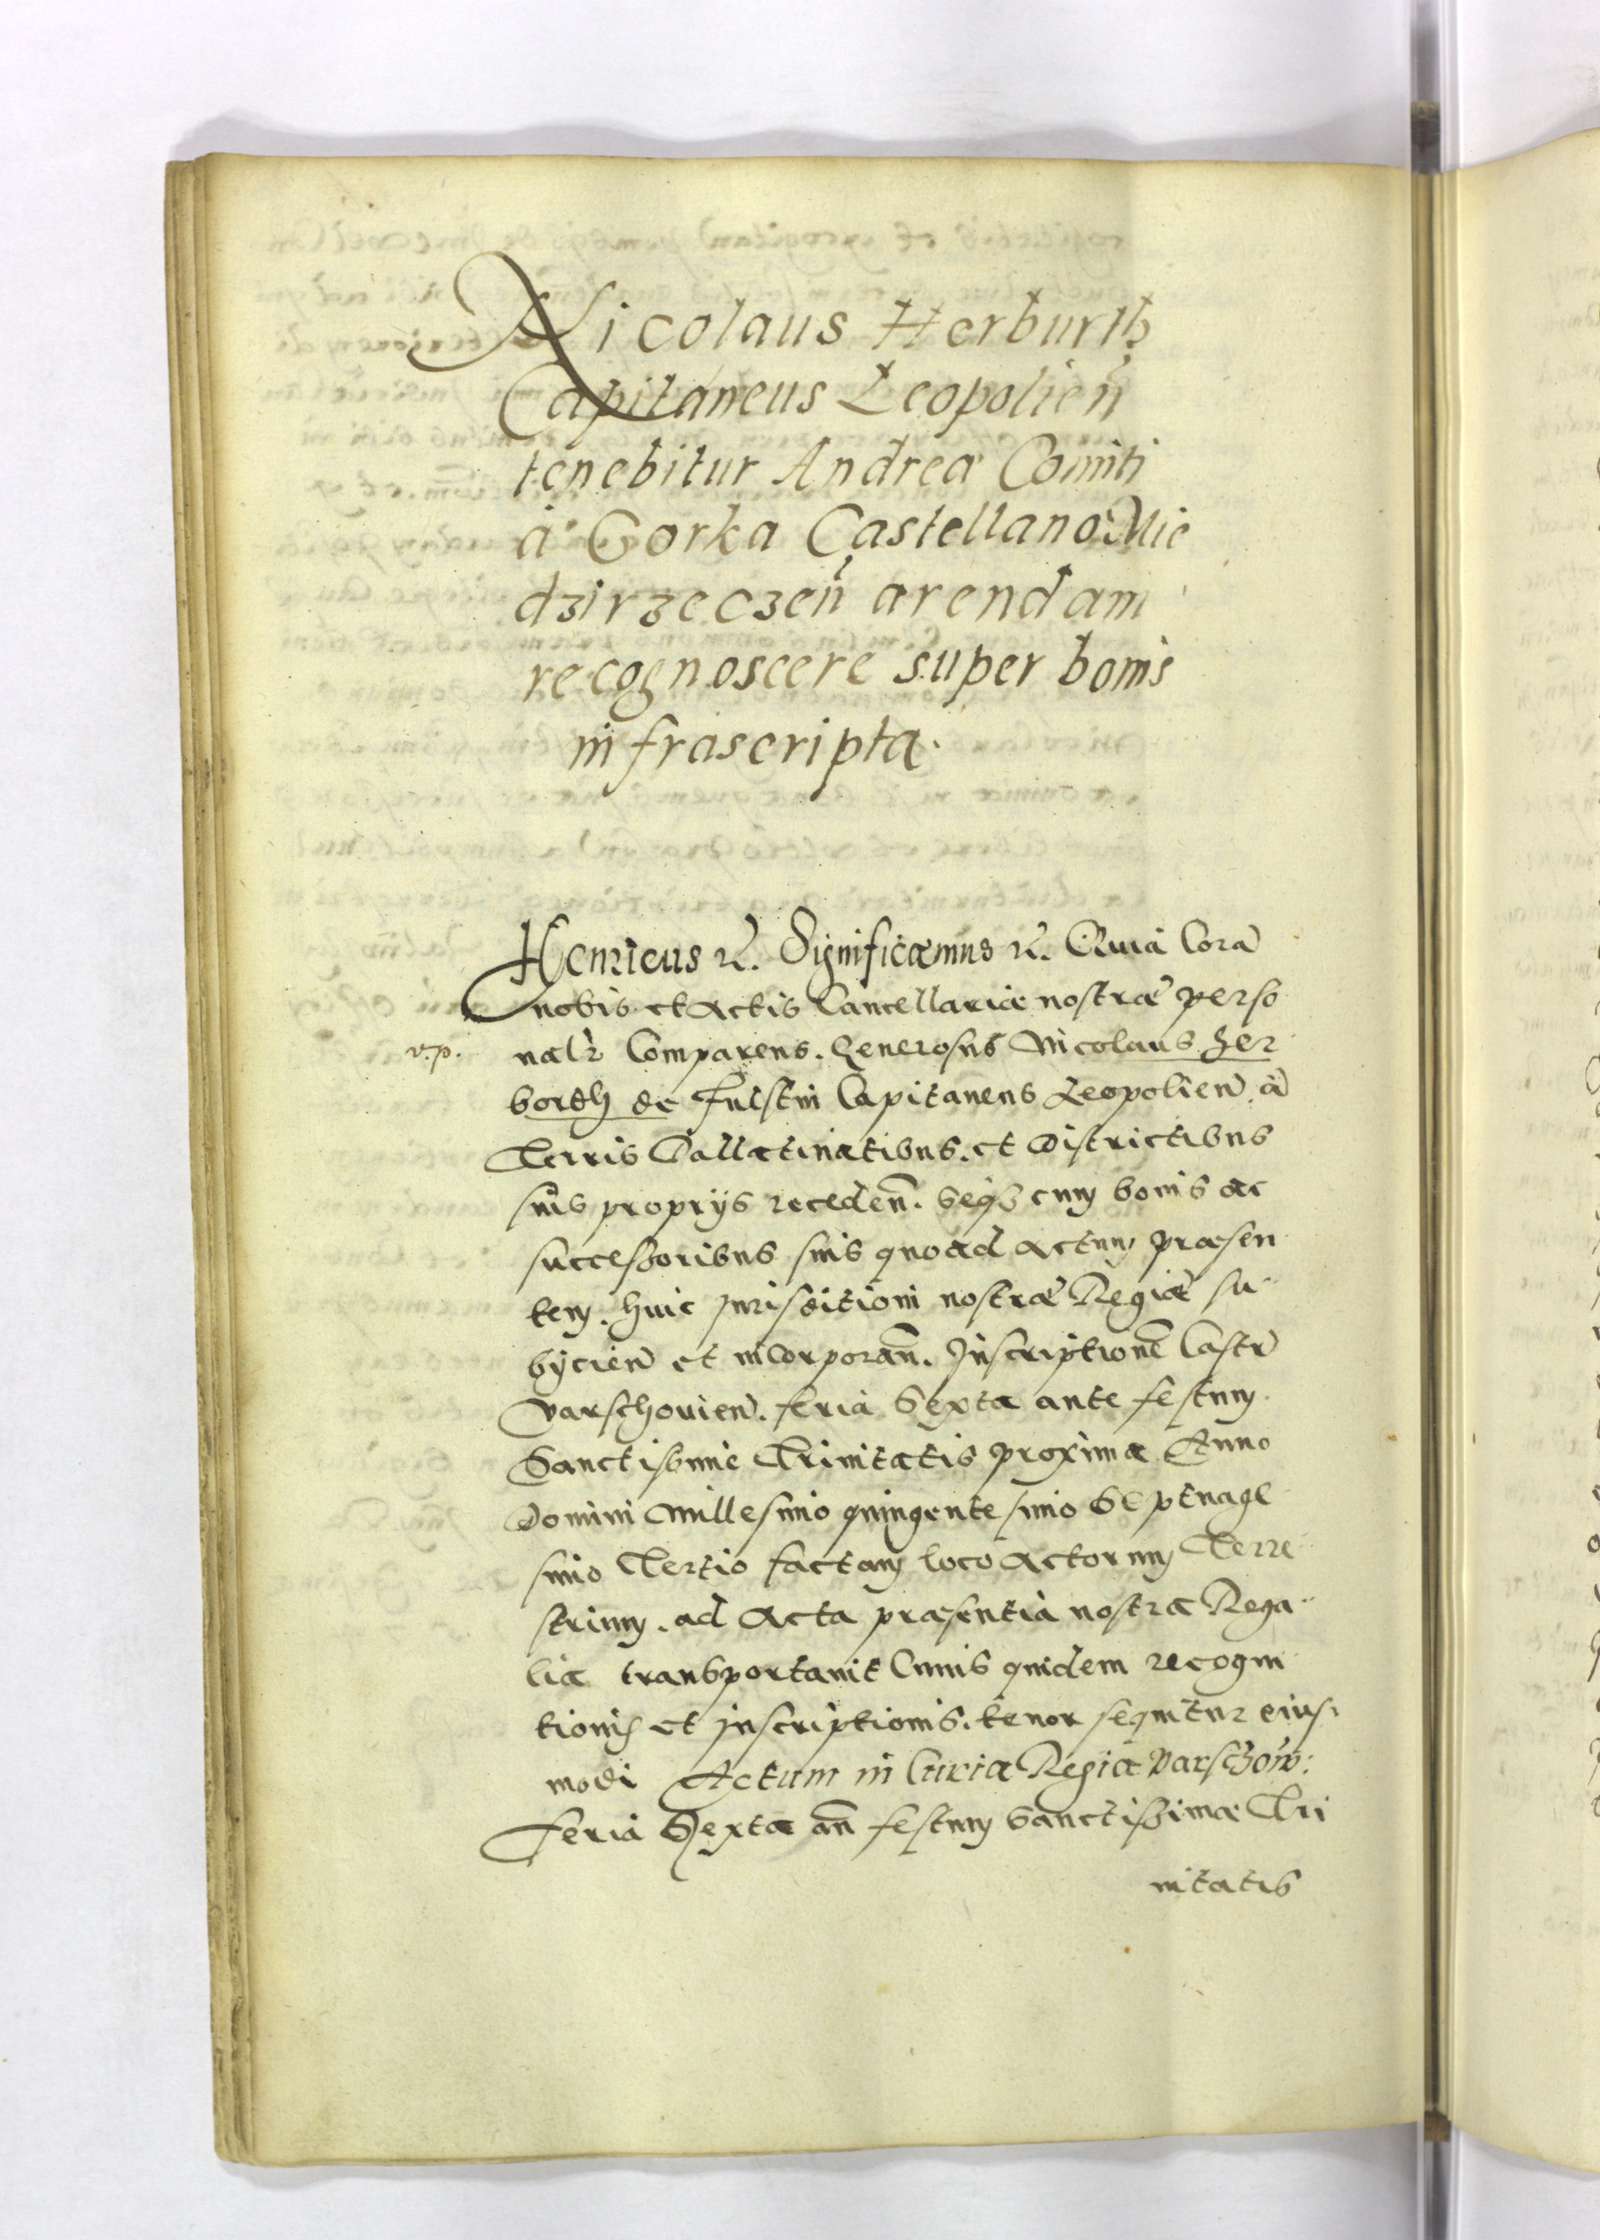 Nicolaus Herburth
Capitaneus Leopolieñ
tenebitur Andreæ Comiti
á Gorka Castellano Mie
dzirzeczeñ arendam
recognoscere super bonis
infrascripta.
Henricus &c. Significamus &c. Quia Corã
nobis et Actis Cancellariæ nostræ perso
v.p.
nalr̃ Comparens. Generosus Nicolaus Her
borth de Fulstin Capitaneus Leopolieñ. á
Terris Pallatinatibus. et Districtibus
suis proprijs recedeñ. Seqꝫ cum bonis ac
successoribus suis quoad Actum præsen
tem. huic Jurisditioni nostræ Regiæ su
bijcieñ et incorporañ. Inscriptionẽ Castr̃
Varschouieñ. feria Sexta ante festum
Sanctissimẽ Trinitatis proxima Anno
Domini Millesimo quingentesimo Septuage
simo Tertio factam loco Actorum Terre
strium. ad Acta præsentia nostra Rega
lia transportauit Cuius quidem recogni
tionis et Inscriptionis. tenor sequitur eius
modi Actum in Curia Regia Varschow:
Feria Sexta añ festum Sanctissimæ Tri
nitatis